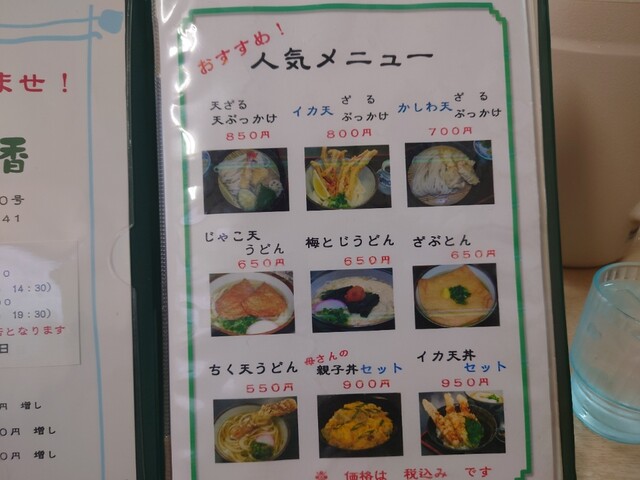 ませ！
香
0号
41
0
14：30）
00
19：30）
となります
日
円 増し
0円 増し
0円 増し
おすすめ！
人気メニュー
天ざる
天ぶっかけ
850円
イカ天 ざる
ぶっかけ
800円
かしわ天 ざる
ぶっかけ
700円
じゃこ天
うどん
650円
梅とじうどん
650円
ざぶとん
650円
ちく天うどん
550円
母さんの
親子丼セット
900円
イカ天丼
セット
950円
価格は 税込み です